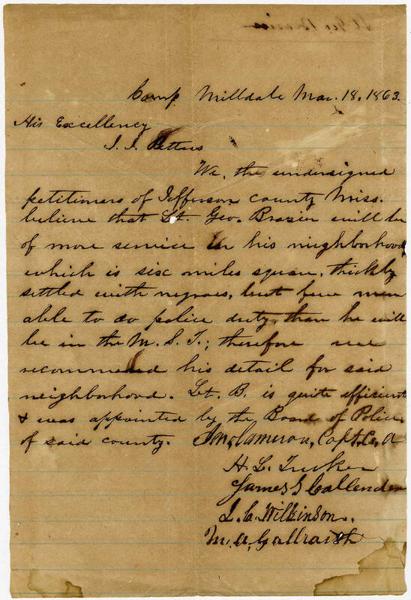 Camp Milldale Mar. 18, 1863.
His Excellency
J. J. Pettus
We, the undersigned
petitioners of Jefferson County Miss.
believe that Lt. Geo. Brazier will be
of more service in his neighborhood,
which is six miles square, thickly
settled with negroes, but few men
able to do police duty, than he will
be in the M. S. T.; therefore we
recommend his detail for said
neighborhood. Lt. B. is quite efficient
& was appointed by the Board of Police
of said county. Jno. Cameron, Capt. Co. A
H. L. Tucker
James S. Callender
J. C. Wilkinson.
M. A. Galbraith